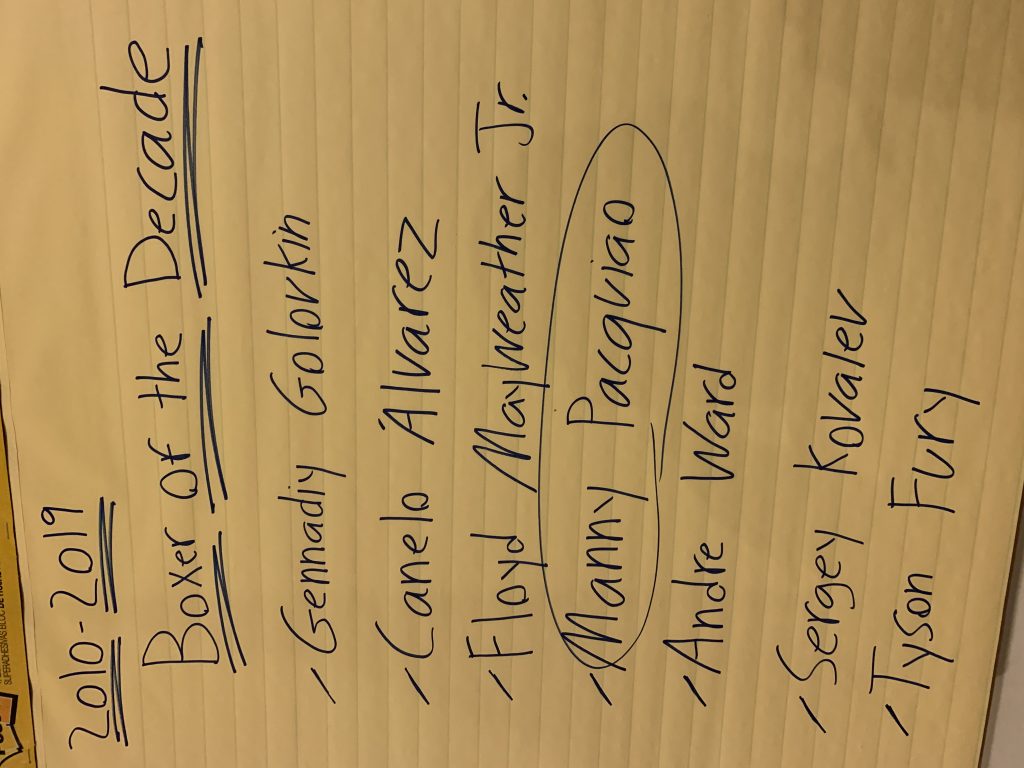 2010-2019
Boxer of the Decade
- Gennadiy Golovkin
- Canelo Álvarez
- Floyd Mayweather Jr.
- Manny Pacquiao
- Andre Ward
- Sergey Kovalev
- Tyson Fury